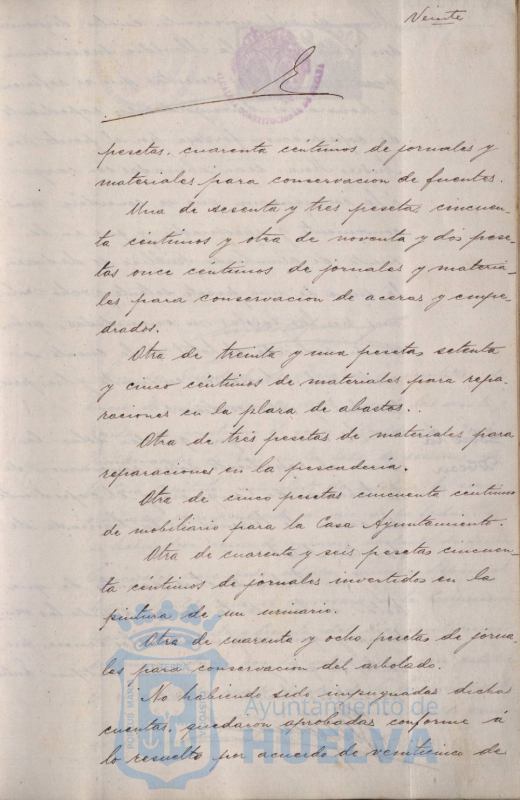 Veinte
pesetas. cuarenta céntimos de jornales y
materiales para conservacion de fuentes.
Una de sesenta y tres pesetas cincuen-
ta céntimos y otra de noventa y dós pese-
tas once céntimos de jornales y materia-
les para conservacion de aceras y empe-
drados.
Otra de treinta y una pesetas setenta
y cinco céntimos de materiales para repa-
raciones en la plaza de abastos.
Otra de tres pesetas de materiales para
reparaciones en la pescadería.
Otra de cinco pesetas cincuenta céntimos
de mobiliario para la Casa Ayuntamiento.
Otra de cuarenta y seis pesetas cincuen-
ta céntimos de jornales invertidos en la
pintura de un urinario.
Otra de cuarenta y ocho pesetas de jorna-
les para conservacion del arbolado.
No habiendo sido impugnadas dichas
cuentas, quedaron aprobadas conforme á
lo resuelto por acuerdo de veinticinco de
Ayuntamiento de
HUELVA